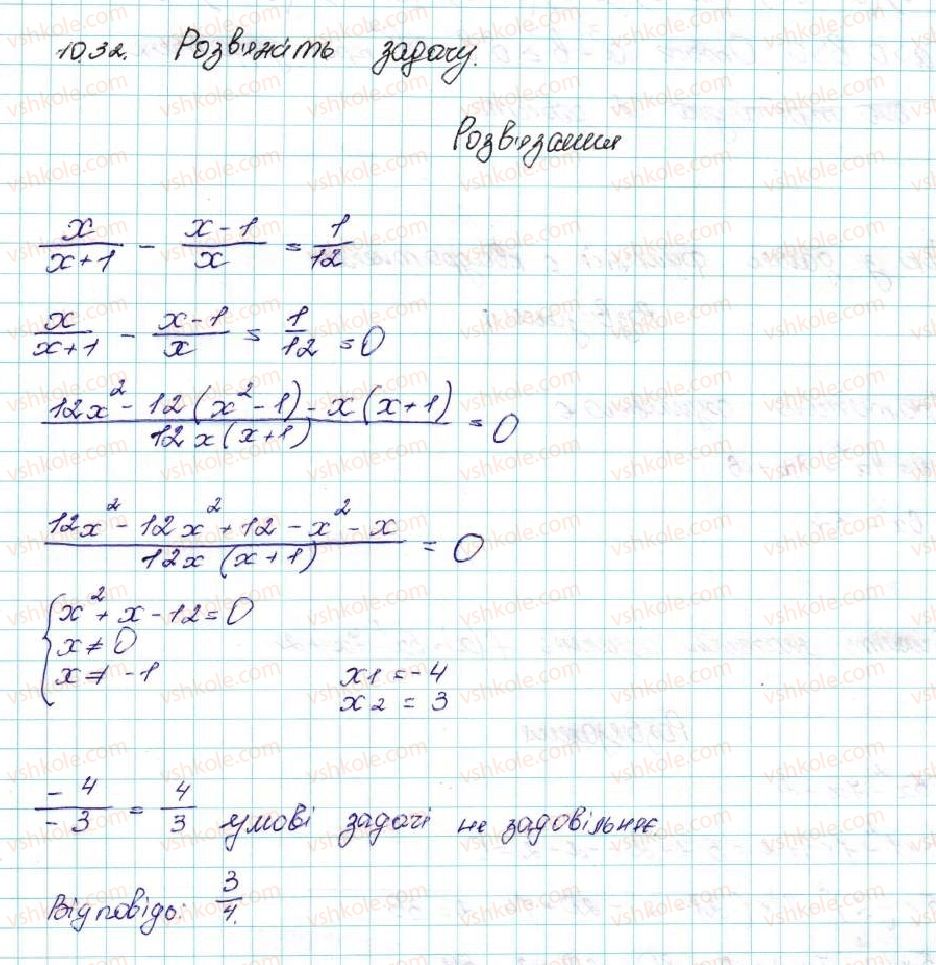 10.32. Розв'яжіть задачу.
Розв'язання
x/(x+1) - (x-1)/x = 1/12
x/(x+1) - (x-1)/x = 1/12 = 0
(12x² - 12(x² - 1) - x(x+1))/(12x(x+1)) = 0
(12x² - 12x² + 12 - x² - x)/(12x(x+1)) = 0
{ x² + x - 12 = 0
x ≠ 0
x ≠ -1 x1 = -4
x2 = 3
-4/-3 = 4/3 умові задачі не задовільняє.
Відповідь: 3/4.